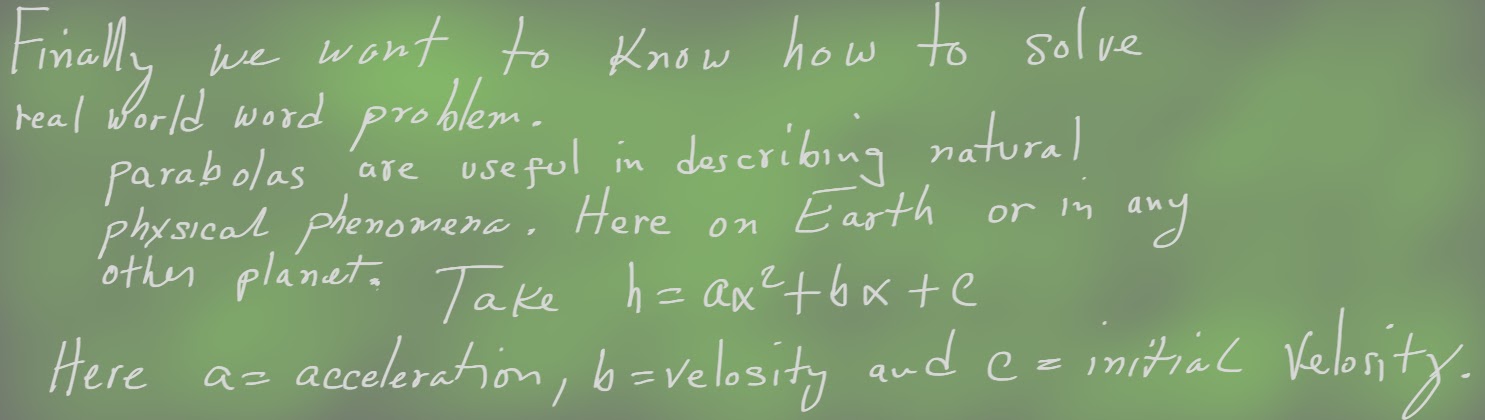 Finally we want to know how to solve
real world word problem.
parabolas are useful in describing natural
physical phenomena. Here on Earth or in any
other planet. Take h = ax²+bx+c
Here a= acceleration, b=velosity and c = initial velosity.